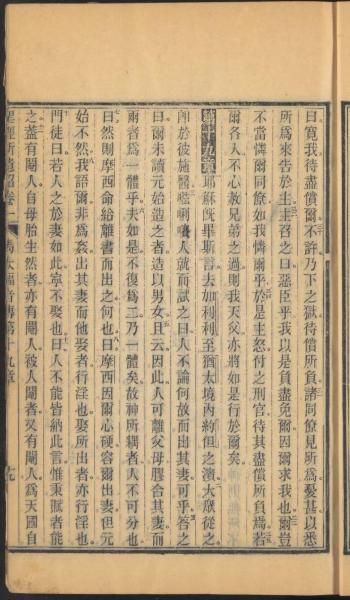 曰寬我待盡償爾不許乃下之獄待償所負諸同僚見所爲憂甚以悉
所爲來告於主主召之曰惡臣乎我以是負盡免爾因爾求我也爾豈
不當憐爾同僚如我憐爾乎於是主怒付之刑官待其盡償所負焉若
爾各人不心赦兄弟之過則我天父亦將如是行於爾矣
第十九章耶穌旣畢斯言去加利利至猶太境內約但之濱大衆從之
卽於彼施醫𠵽唎㘔人就而試之曰人不論何故而出其妻可乎答之
曰爾未讀元始造之者造以男女且云因此人可離父母膠合其妻而
兩者爲一體乎夫如是不復爲二乃一體矣故神所耦者人不可分也
曰然則摩西命給離書而出之何也曰摩西因爾心硬容爾出妻但元
始不然我語爾非爲姦出其妻而他娶者行淫也娶所出者亦行淫也
門徒曰若人之於妻如此寧不娶也曰人不能皆納此言惟秉賦者能
之蓋有閹人自母胎生然者亦有閹人被人閹者又有閹人爲天國自
聖經新遺詔卷一
馬太福音傳第十九章